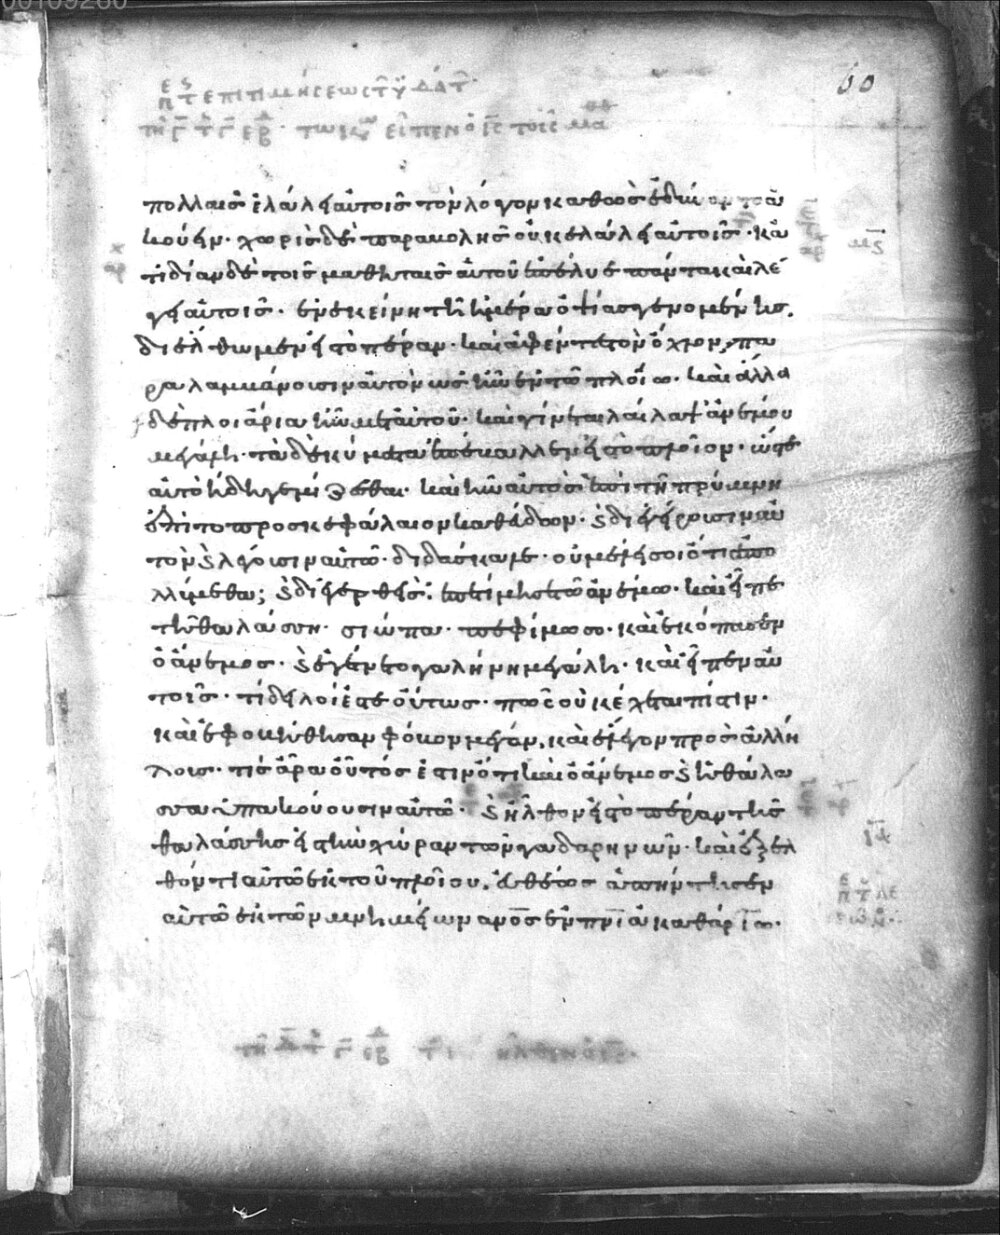 00109260
60
ἐπιτιμήσεως τ υδατ
εἶπεν ὁ ι̅ς̅ τοῖς μα
πολλαῖς ἐλάλει αὐτοῖς τὸν λόγον καθὼς ἐδύναντο ἀ
κούειν· χωρὶς δὲ παραβολῆς οὐκ ἐλάλει αὐτοῖς· κα
τιδίαν δὲ τοῖς μαθηταῖς αὐτοῦ ἐπέλυε πάντα καὶ λέ
γει αὐτοῖς· ἐν ἐκείνη τῆ ἡμέρα ὀψίας γενομένης.
διέλθωμεν εἰς τὸ πέραν· καὶ ἀφέντες τὸν ὄχλον, πα
ραλαμβάνουσιν αὐτὸν ὡς ἦν ἐν τῶ πλοίω. καὶ ἄλλα
δὲ πλοιάρια ἦν μετ αὐτοῦ· καὶ γίνεται λαίλαψ ἀνέμου
μεγάλη· τὰ δὲ κύματα ἐπέβαλλεν εἰς τὸ πλοῖον· ὥστε
αὐτὸ ἤδη γεμίζεσθαι· καὶ ἦν αὐτὸς ἐπὶ τῆ πρύμνη
ἐπὶ τὸ προσκεφάλαιον καθεύδων. ϗ διεγείρουσιν αὐ
τὸν ϗ λέγουσιν αὐτῶ· διδάσκαλε· οὐ μέλει σοι ὅτι ἀπο
λλύμεθα; ϗ διεγερθεὶς. ἐπετίμησε τῶ ἀνέμω. καὶ εἶπε
τῆ θαλάσση· σιώπα· πεφίμωσο. καὶ ἐκόπασεν
ὁ ἄνεμος. ϗ ἐγένετο γαλήνη μεγάλη. καὶ εἶπεν αὐ
τοῖς· τί δειλοί ἐστε οὕτως· πῶς οὐκ ἔχεται πίστιν·
καὶ ἐφοβήθησαν φόβον μέγαν, καὶ ἔλεγον πρὸς ἀλλή
λους· τίς ἄρα οὗτός ἐστιν ὅτι καὶ ὁ ἄνεμος ϗ ἡ θάλα
σσα ὑπακούουσιν αὐτῶ. ϗ ἦλθον εἰς τὸ πέραν τῆς
θαλάσσης εἰς τὴν χώραν τῶν γαδαρηνῶν. καὶ ἐξελ
θόντι αὐτῶ ἐκ τοῦ πλοίου. εὐθέως ἀπήντησεν
αὐτῶ ἐκ τῶν μνημείων α̅ν̅ο̅ς̅ ἐν π̅ν̅ι̅ ἀκαθάρτω.